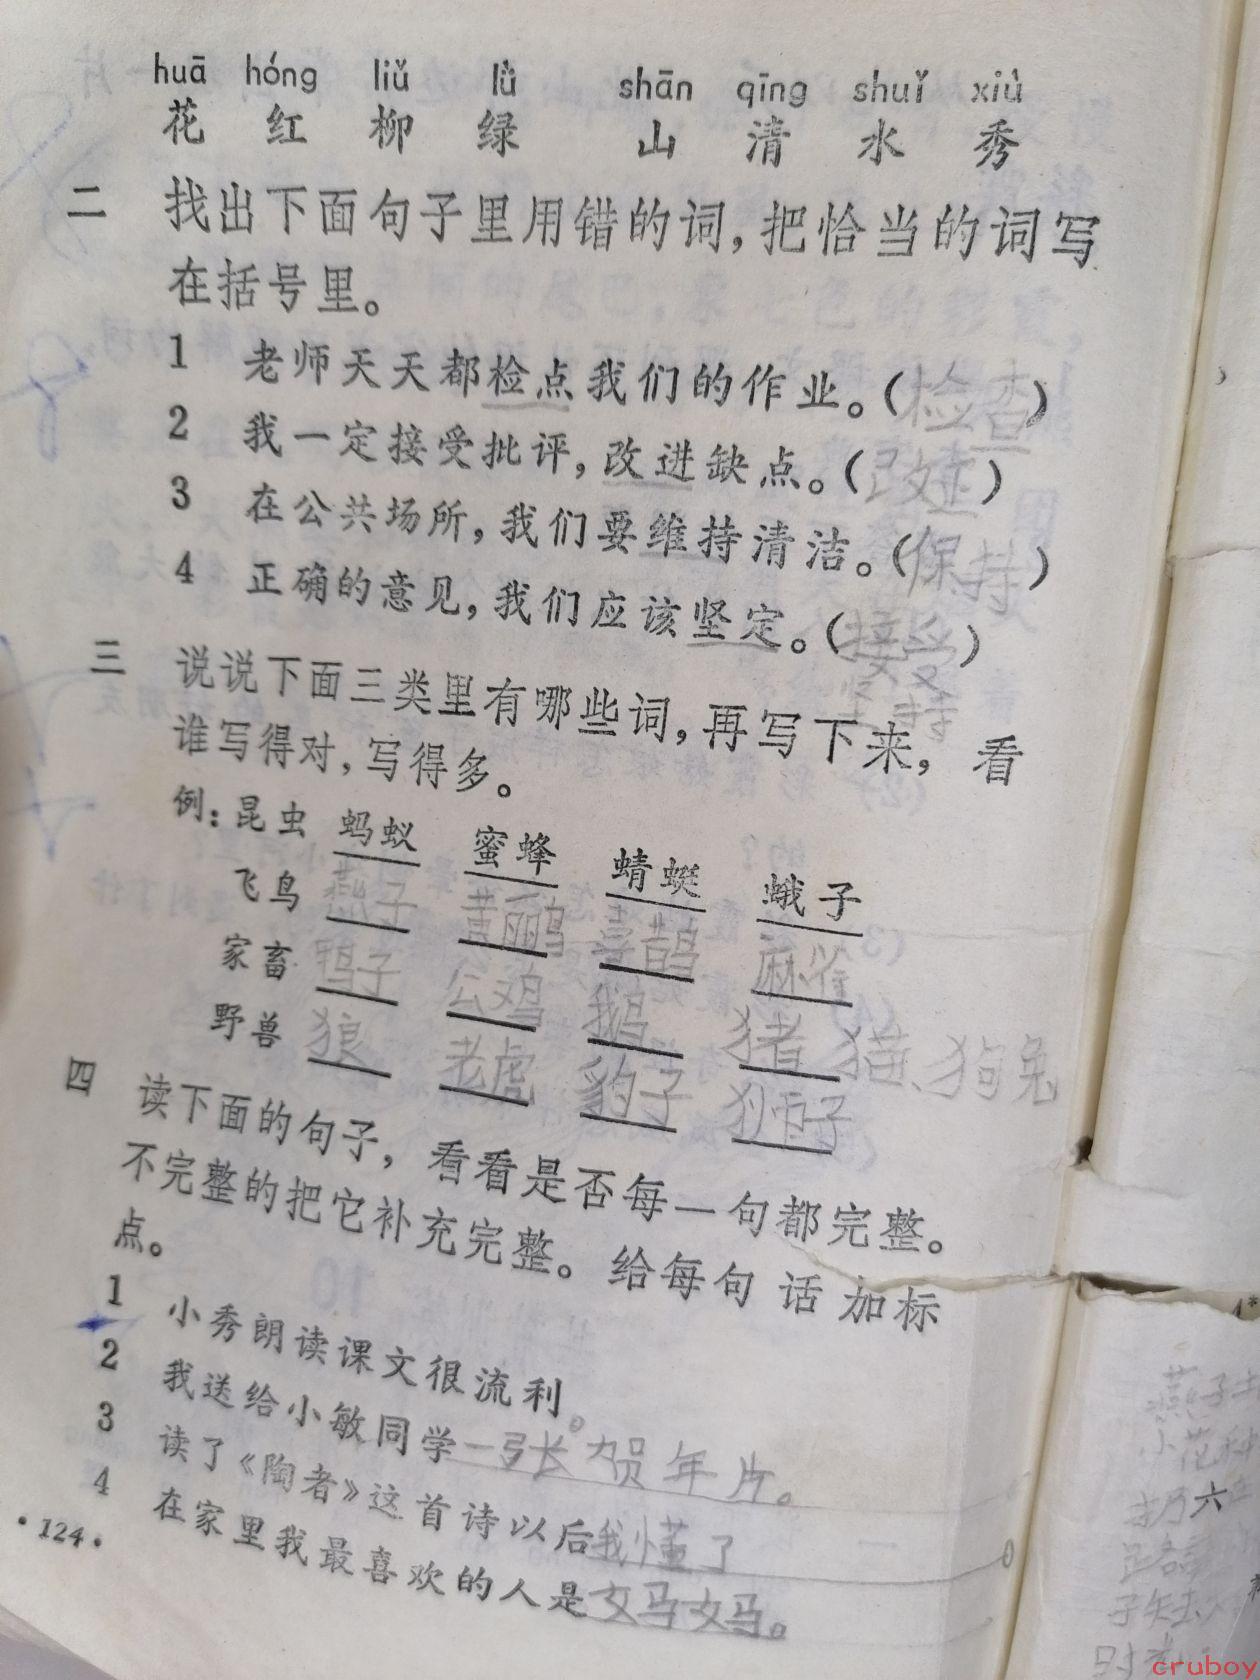 huā hóng liǔ lǜ shān qīng shuǐ xiù
花 红 柳 绿 山 清 水 秀
二 找出下面句子里用错的词,把恰当的词写
在括号里。
1 老师天天都检点我们的作业。(检查)
2 我一定接受批评,改进缺点。(改正)
3 在公共场所,我们要维持清洁。(保持)
4 正确的意见,我们应该坚定。(接受)
坚持
三 说说下面三类里有哪些词,再写下来,看
谁写得对,写得多。
例:昆虫 蚂蚁 蜜蜂 蜻蜓 蛾子
飞鸟 燕子 黄鹂 喜鹊 麻雀
家畜 鸭子 公鸡 鹅 猪 猫、狗兔
野兽 狼 老虎 豹子 狮子
四 读下面的句子,看看是否每一句都完整。
不完整的把它补充完整。给每句话加标
点。
1 小秀朗读课文很流利。
2 我送给小敏同学一张贺年片。
3 读了《陶者》这首诗以后我懂了 一 。
4 在家里我最喜欢的人是妈妈。
·124·
4*
燕子
小花
六
cruboy